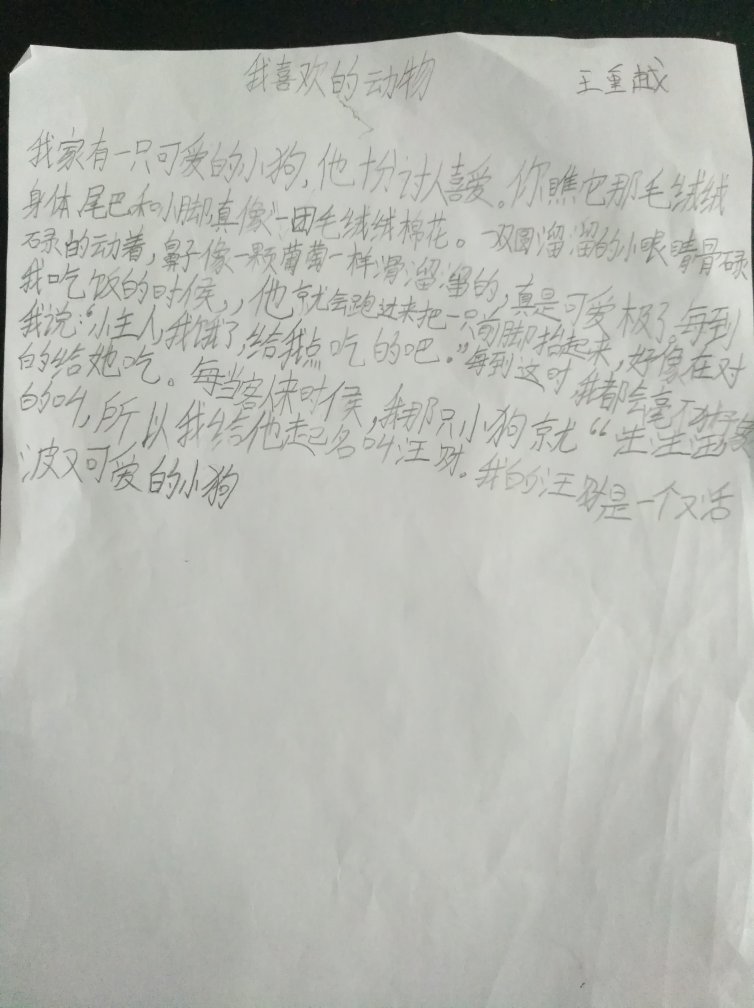 我喜欢的动物 王重越
我家有一只可爱的小狗,他十分讨人喜爱。你瞧它那毛绒绒
身体,尾巴和小脚真像一团毛绒绒棉花。一双圆溜溜的小眼睛骨碌
碌的动着,鼻子像一颗葡萄一样滑溜溜的,真是可爱极了。每到
我吃饭的时候,,他就会跑过来把一只前脚抬起来,好像在对
我说:“小主人,我饿了,给我点吃的吧。”每到这时,我都会毫不
的给她吃。每当客人来时候,我那只小狗就“
的叫,所以我给他起名叫汪财。我的汪财是一个又活
波又可爱的小狗